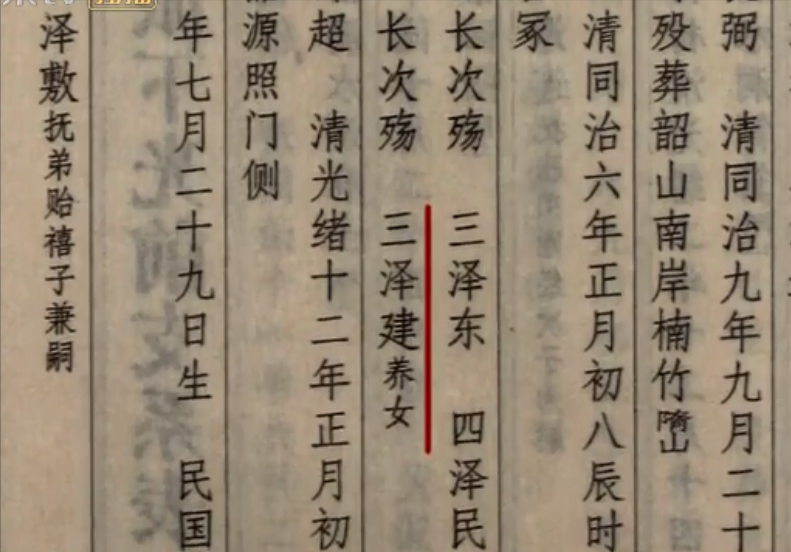 弼 清同治九年九月二十
殁葬韶山南岸楠竹
清同治六年正月初八辰时
冢
长次殇 三泽东 四泽民
长次殇 三泽建养女
超 清光绪十二年正月初
源照门侧
年七月二十九日生 民国
泽敷抚弟贻禧子兼嗣